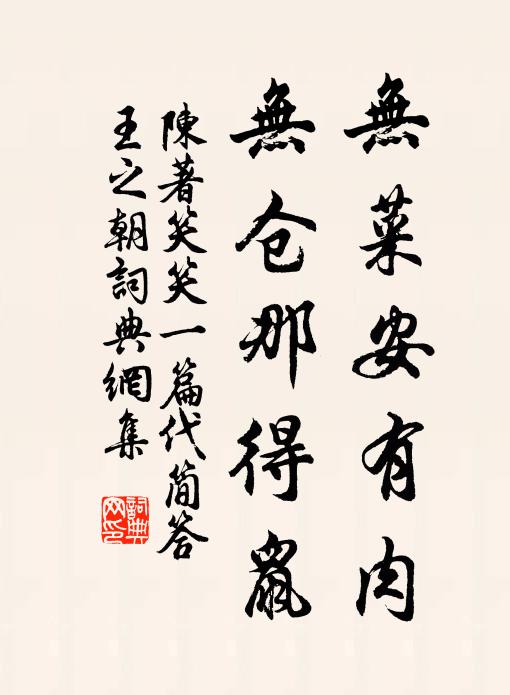 無菜安有肉
無仓那得鼠
陳著笑笑一篇代简答
王之朝詞典網集
詞典网印